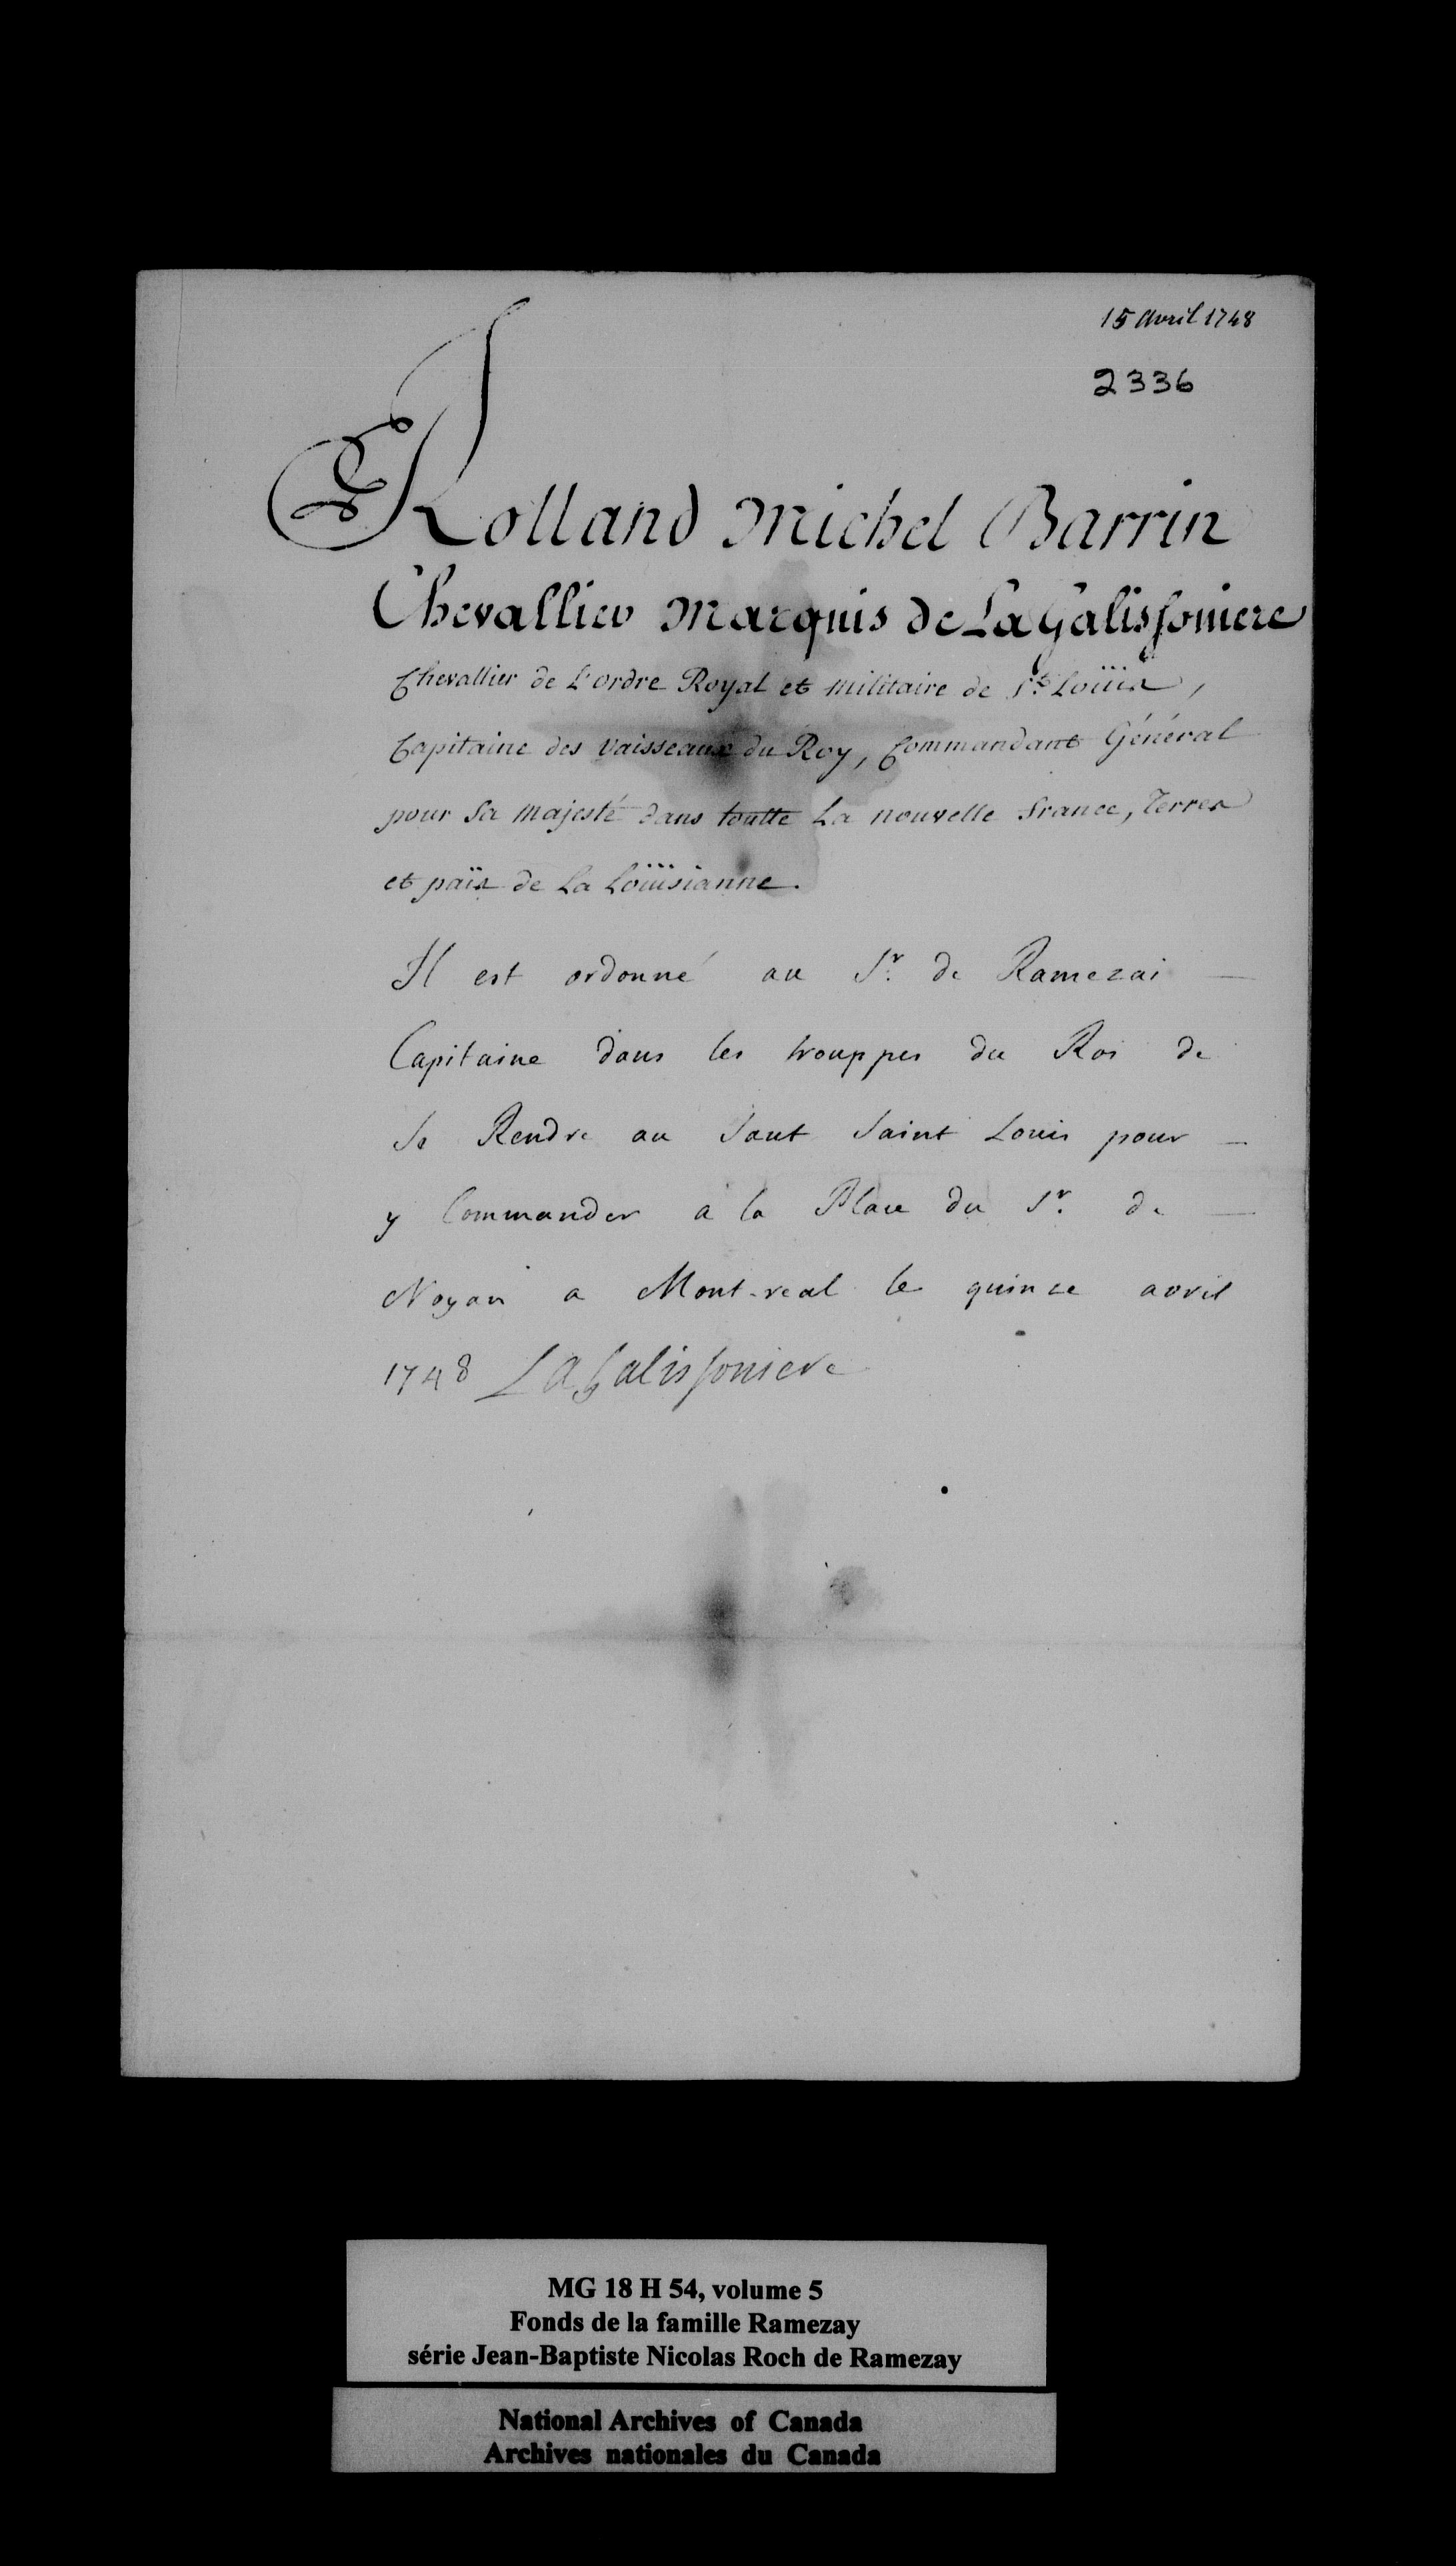 15 avril 1748
2336
Rolland Michel Barrin
Chevallier Marquis de La Galissoniere
Chevallier de L'ordre Royal et militaire de St. Loüis,
Capitaine des Vaisseaux du Roy, Commandant Général
pour Sa Majesté dans toutte La nouvelle france, Terres
et païs de La Loüisianne.
Il est ordonné au Sr. de Ramezai —
Capitaine dans les trouppes du Roi de
Se Rendre au Saut Saint Louis pour —
y Commander a la Place du Sr. de —
Noyan a Mont-real le quinze avril
1748 LaGalissoniere
MG 18 H 54, volume 5
Fonds de la famille Ramezay
série Jean-Baptiste Nicolas Roch de Ramezay
National Archives of Canada
Archives nationales du Canada